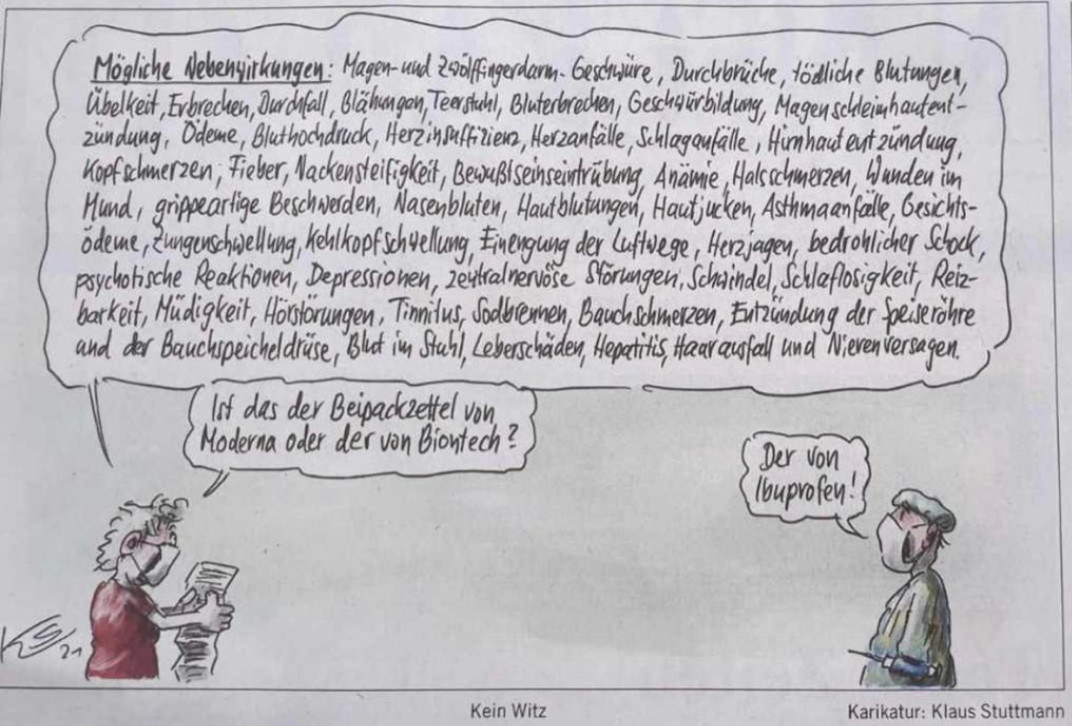 Mögliche Nebenwirkungen: Magen- und Zwölffingerdarm-Geschwüre, Durchbrüche, tödliche Blutungen,
Übelkeit, Erbrechen, Durchfall, Blähungen, Teerstuhl, Bluterbrechen, Geschwürbildung, Magenschleimhautent-
zündung, Ödeme, Bluthochdruck, Herzinsuffizienz, Herzanfälle, Schlaganfälle, Hirnhautentzündung,
Kopfschmerzen, Fieber, Nackensteifigkeit, Bewußtseinseintrübung, Anämie, Halsschmerzen, Wunden im
Mund, grippeartige Beschwerden, Nasenbluten, Hautblutungen, Hautjucken, Asthmaanfälle, Gesichts-
ödeme, Zungenschwellung, Kehlkopfschwellung, Einengung der Luftwege, Herzjagen, bedrohlicher Schock,
psychotische Reaktionen, Depressionen, zentralnervöse Störungen, Schwindel, Schlaflosigkeit, Reiz-
barkeit, Müdigkeit, Hörstörungen, Tinnitus, Sodbrennen, Bauchschmerzen, Entzündung der Speiseröhre
und der Bauchspeicheldrüse, Blut im Stuhl, Leberschäden, Hepatitis, Haarausfall und Nierenversagen.
Ist das der Beipackzettel von
Moderna oder der von Biontech?
Der von
Ibuprofen!
KS 21
Kein Witz
Karikatur: Klaus Stuttmann